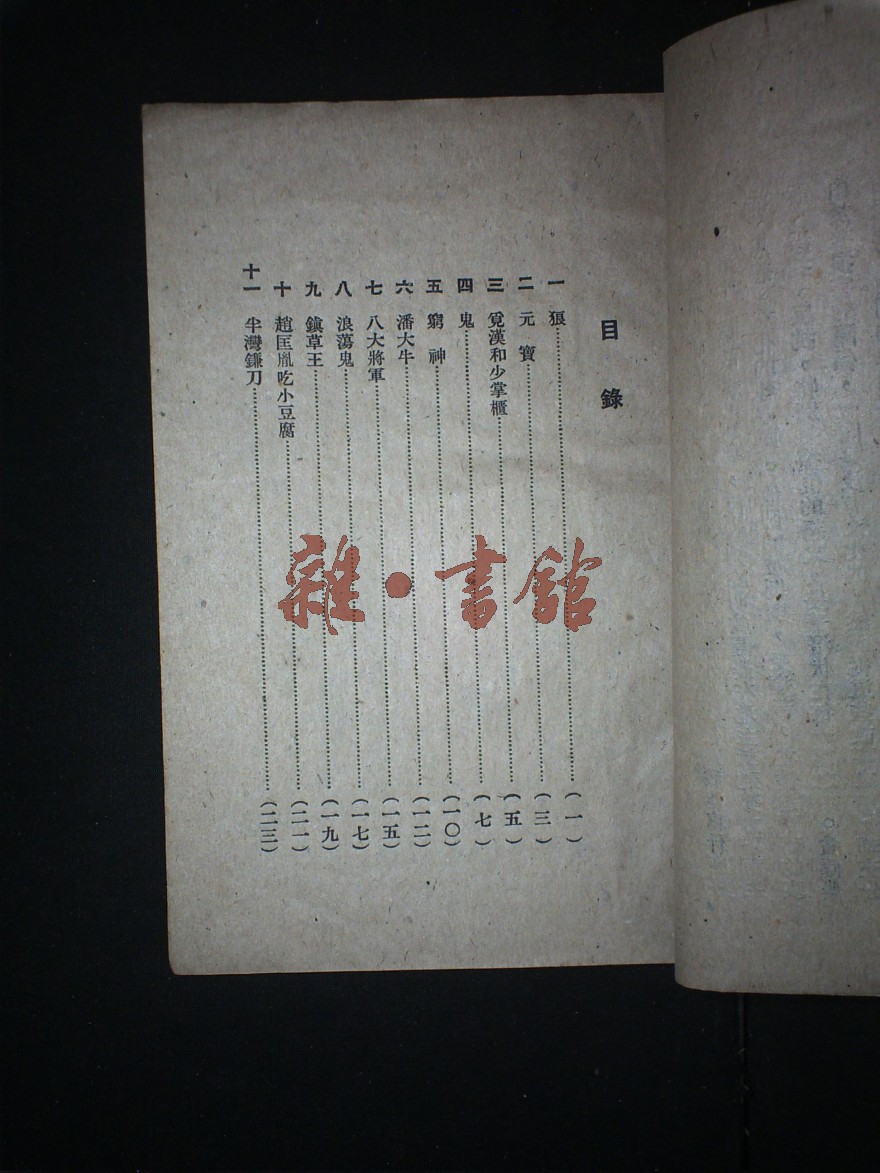 目錄
一 狼……(一)
二 元寶……(三)
三 覓漢和少掌櫃……(五)
四 鬼……(七)
五 窮神……(一〇)
六 潘大牛……(一二)
七 八大將軍……(一五)
八 浪蕩鬼……(一七)
九 鎮草王……(一九)
十 趙匡胤吃小豆腐……(二一)
十一 半灣鐮刀……(二三)
雜·書館